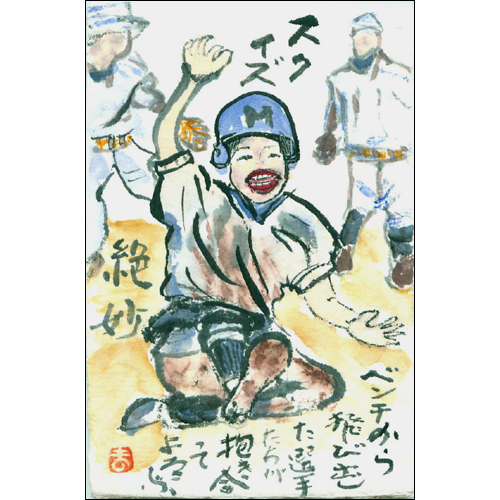 スク
イズ
M
絶妙
ベンチから
飛び出し
た選手
たちが
抱き合
って
よろこぶ